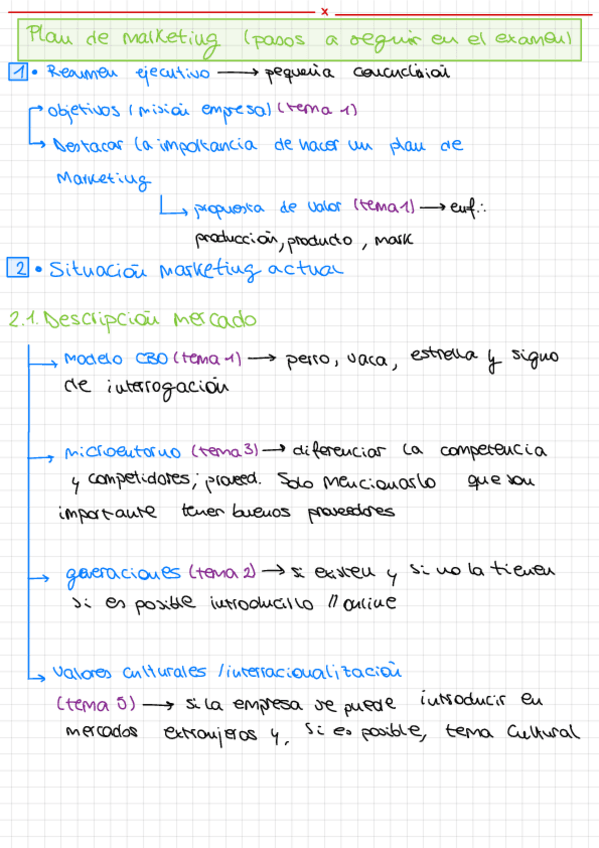 x
Plan de marketing (pasos a seguir en el examen)
1 • Resumen ejecutivo → pequeña conclusión
→ objetivos (misión empresa) (tema 1)
→ Destacar la importancia de hacer un plan de
Marketing
→ propuesta de valor (tema 1) → enf.:
producción, producto, mark
2 • Situación marketing actual
2.1. Descripción mercado
→ Modelo CBO (tema 1) → perro, vaca, estrella y signo
de interrogación
→ microentorno (tema 3) → diferenciar la competencia
y competidores; proveed. Solo mencionarlo que son
importante tener buenos proveedores
→ generaciones (tema 2) → si existen y si no la tienen
si es posible introducirlo // online
→ Valores culturales / internacionalización
(tema 5) → si la empresa se puede introducir en
mercados extranjeros y, si es posible, tema cultural